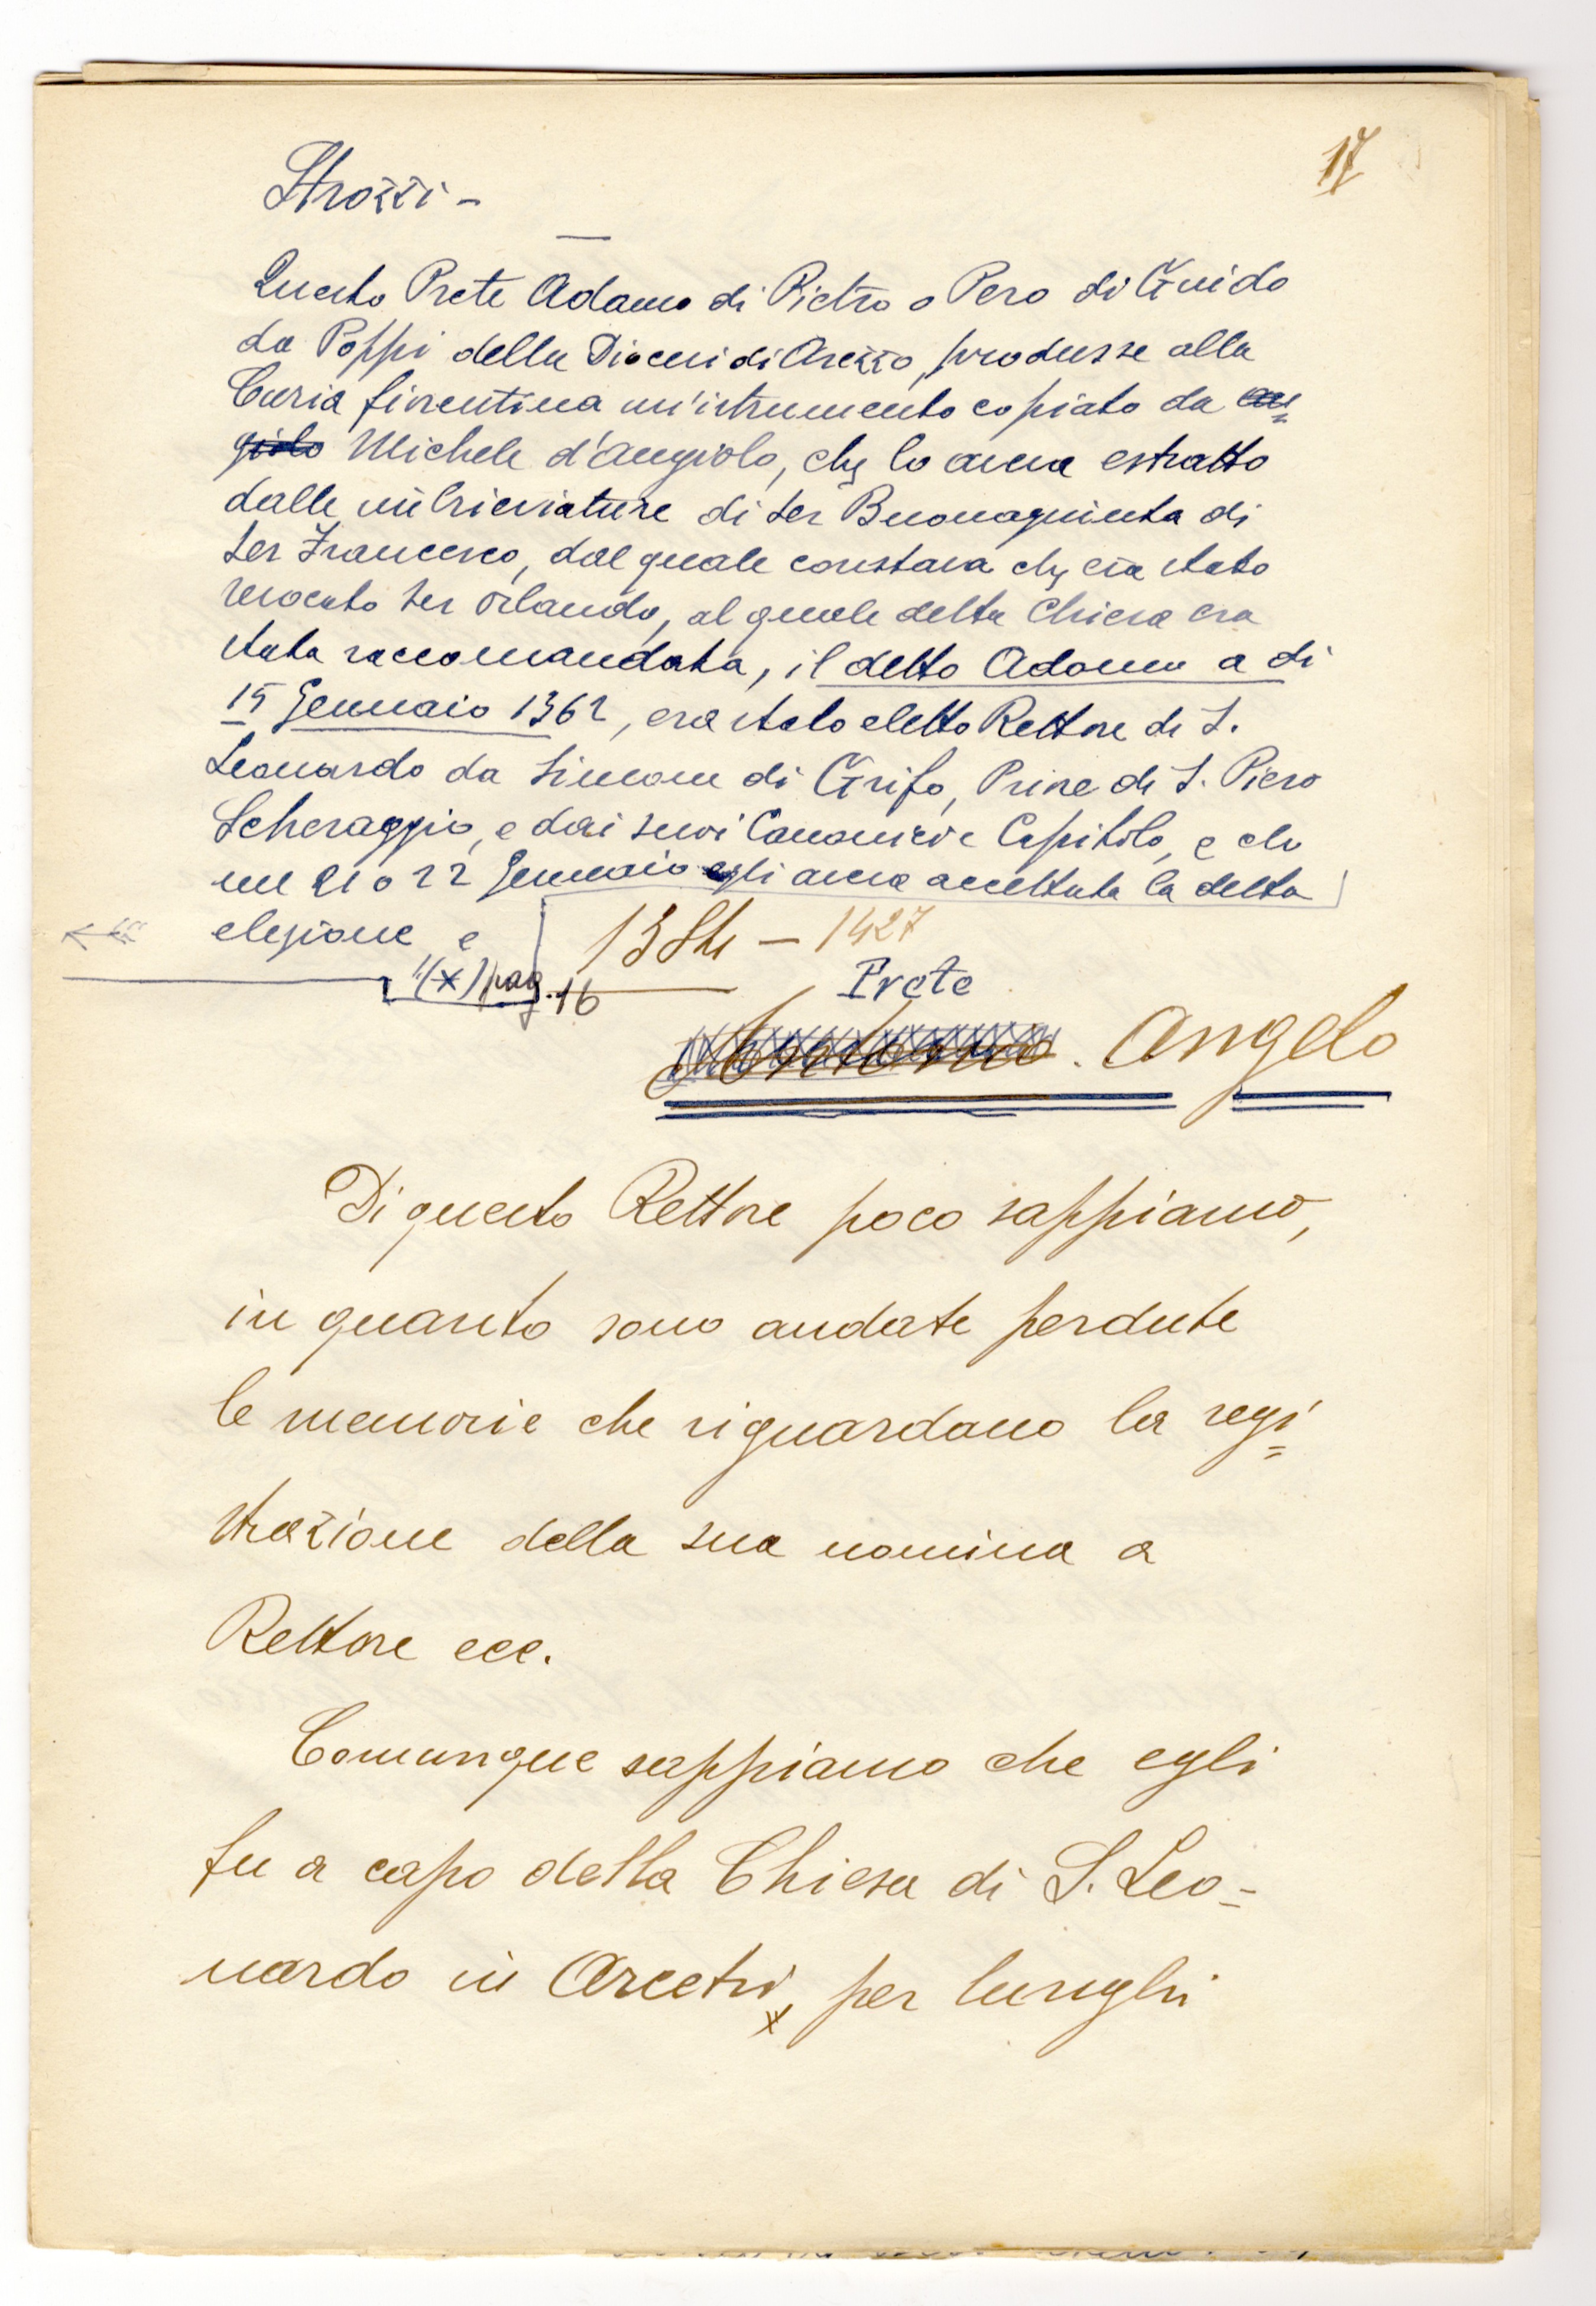 17
Strozzi -
Questo Prete Adamo di Pietro o Pero di Guido
da Poppi della Diocesi di Arezzo, produsse alla
Curia fiorentina un'istrumento copiato da an=
giolo Michele d'Angiolo, che lo aveva estratto
dalle imbreviature di Ser Buonagiunta di
Ser Francesco, dal quale constava che era stato
revocato Ser Orlando, al quale detta Chiesa era
stata raccomandata, il detto Adamo a di
15 Gennaio 1362, era stato eletto Rettore di S.
Leonardo da Simone di Grifo, Priore di S. Piero
Scheraggio, e dai suoi Canonici e Capitolo, e che
nel 21 o 22 Gennaio egli aveva accettata la detta
elezione e
"(x) pag. 16
1384 - 1427
Prete
Angelo
Di questo Rettore poco sappiamo,
in quanto sono andate perdute
le memorie che riguardano la regi=
strazione della sua nomina a
Rettore ecc.
Comunque sappiamo che egli
fu a capo della Chiesa di S. Leo=
nardo in Arcetri, x per lunghi